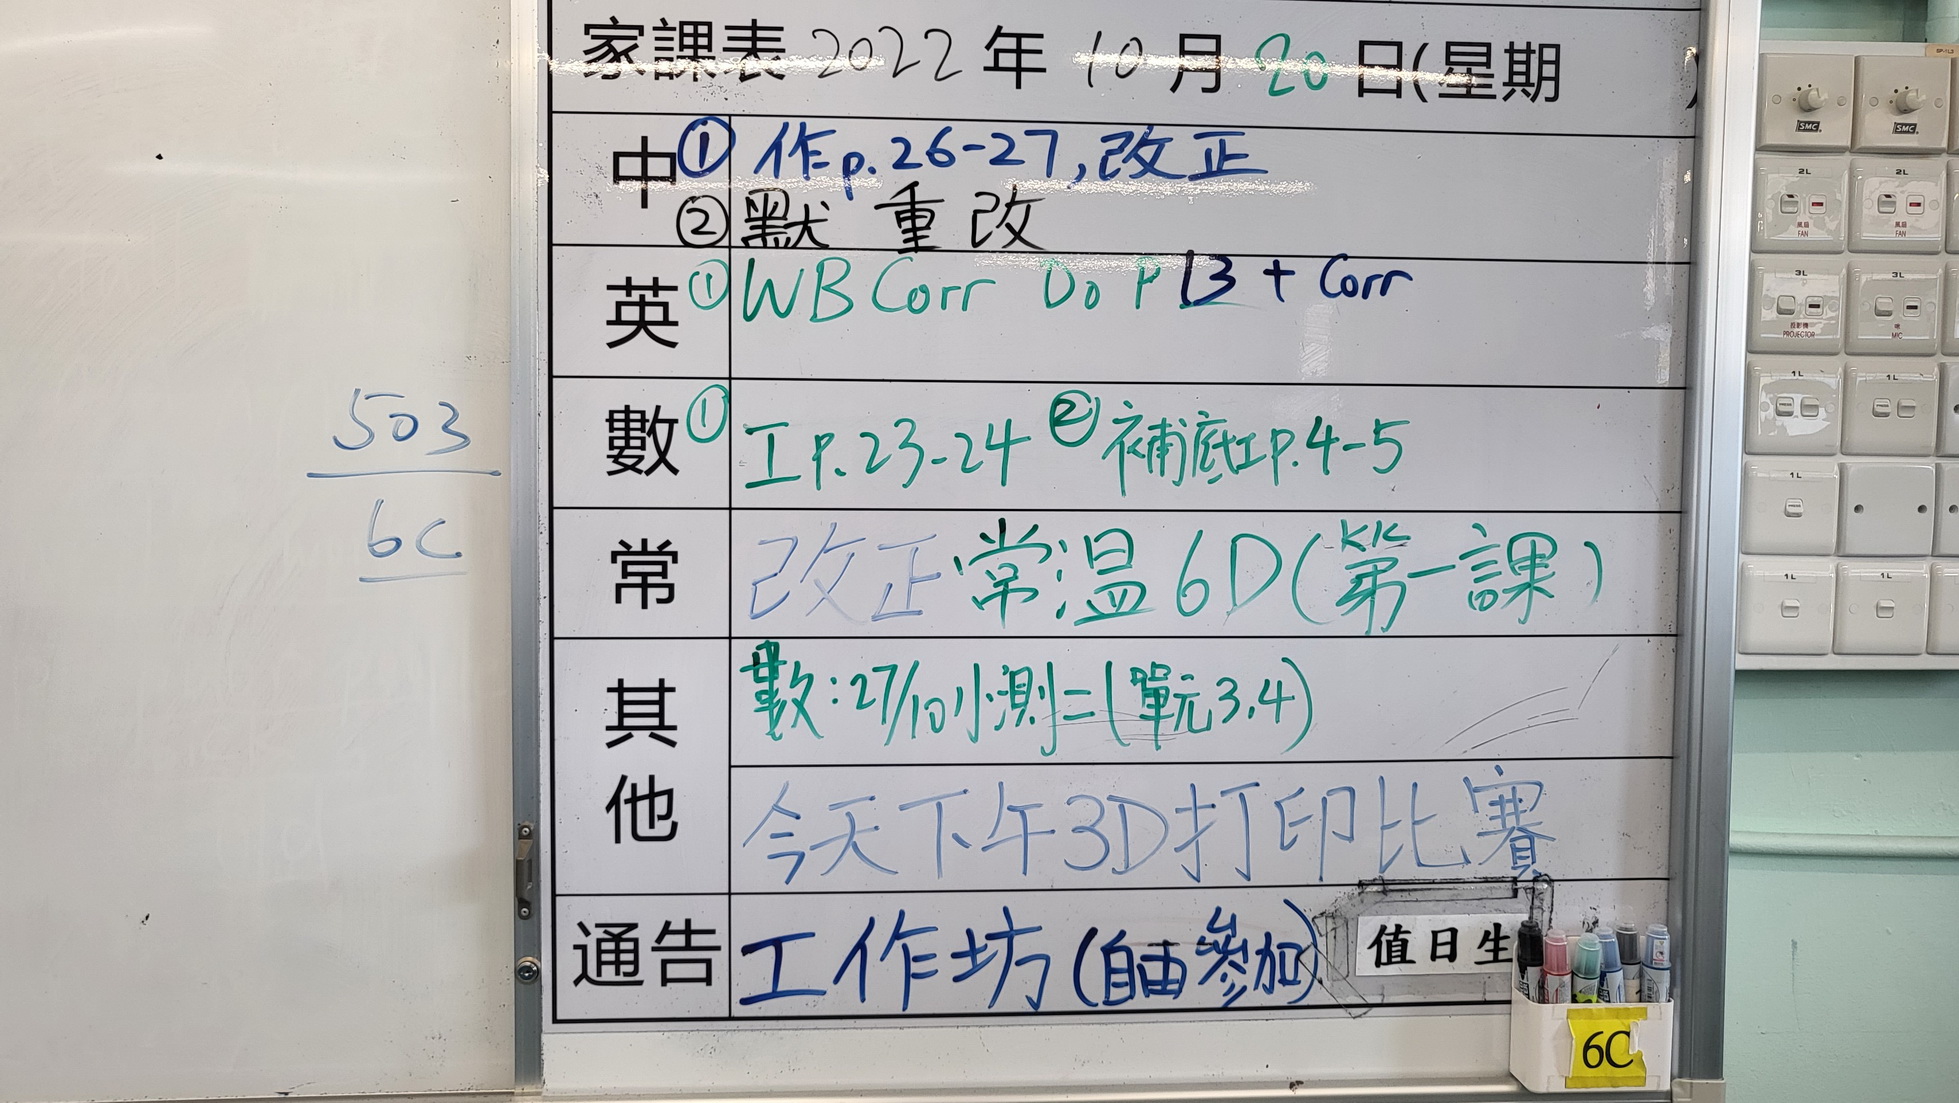 家課表 2022 年 10 月 20 日(星期 )
中 ① 作p.26-27,改正
② 默 重 改
英 ① WB Corr Do P 13 + Corr
數 ① 工 P.23-24 ② 補底工P.4-5
常 改正 常溫 6D(第一課)
其他 數:27/10小測二(單元3,4)
今天下午3D打印比賽
通告 工作坊(自由參加)
值日生
6C
503
6C
SMC
SMC
2L
風扇
FAN
2L
風扇
FAN
3L
投影機
PROJECTOR
3L
咪
MIC
1L
1L
1L
1L
1L